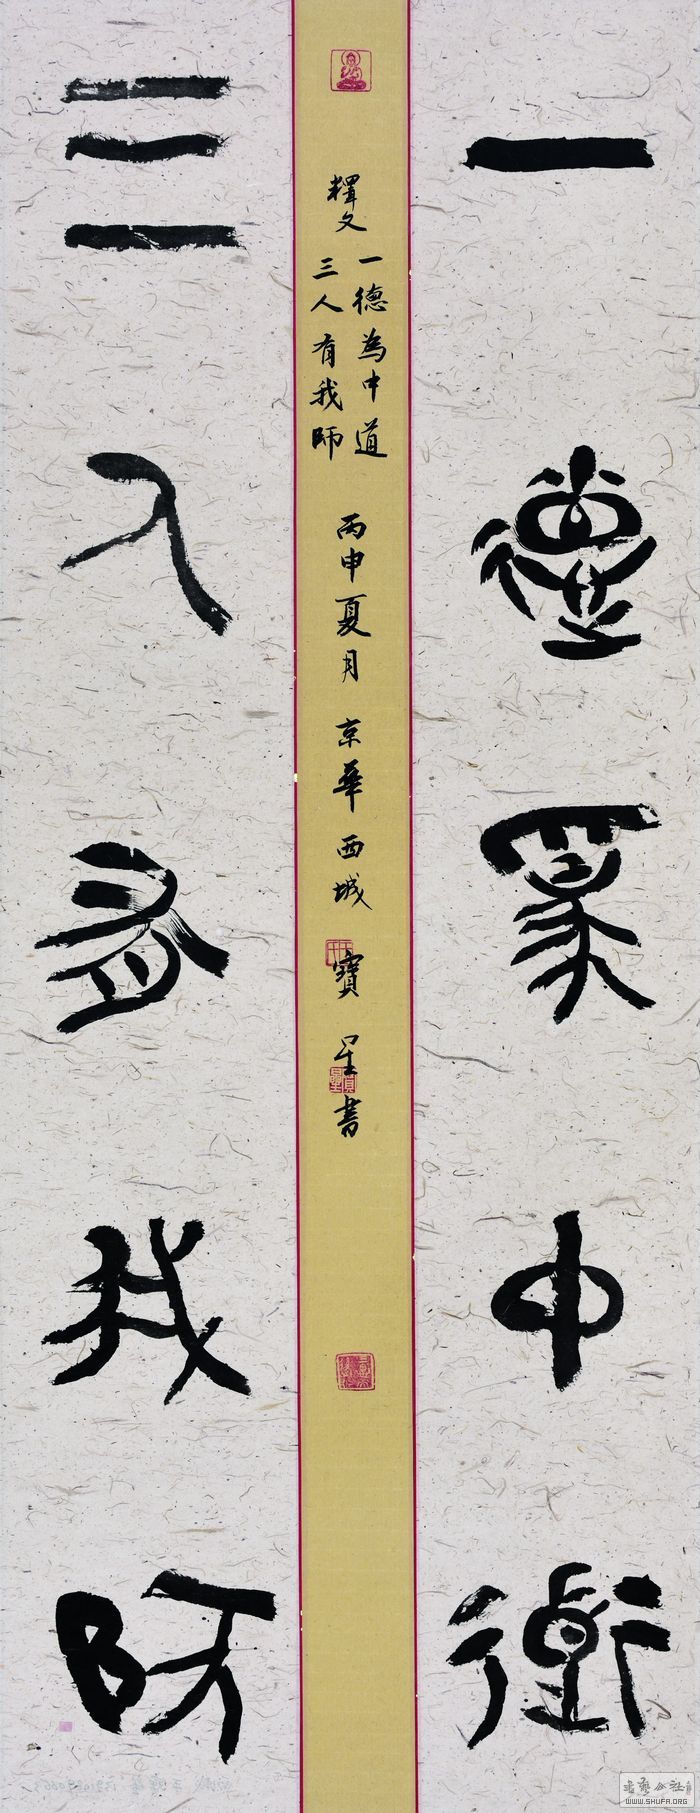 一德為中道
三人有我師
釋文
一德為中道
三人有我師
丙申夏月 京華西城 寶星書
WWW.SHUFA.ORG